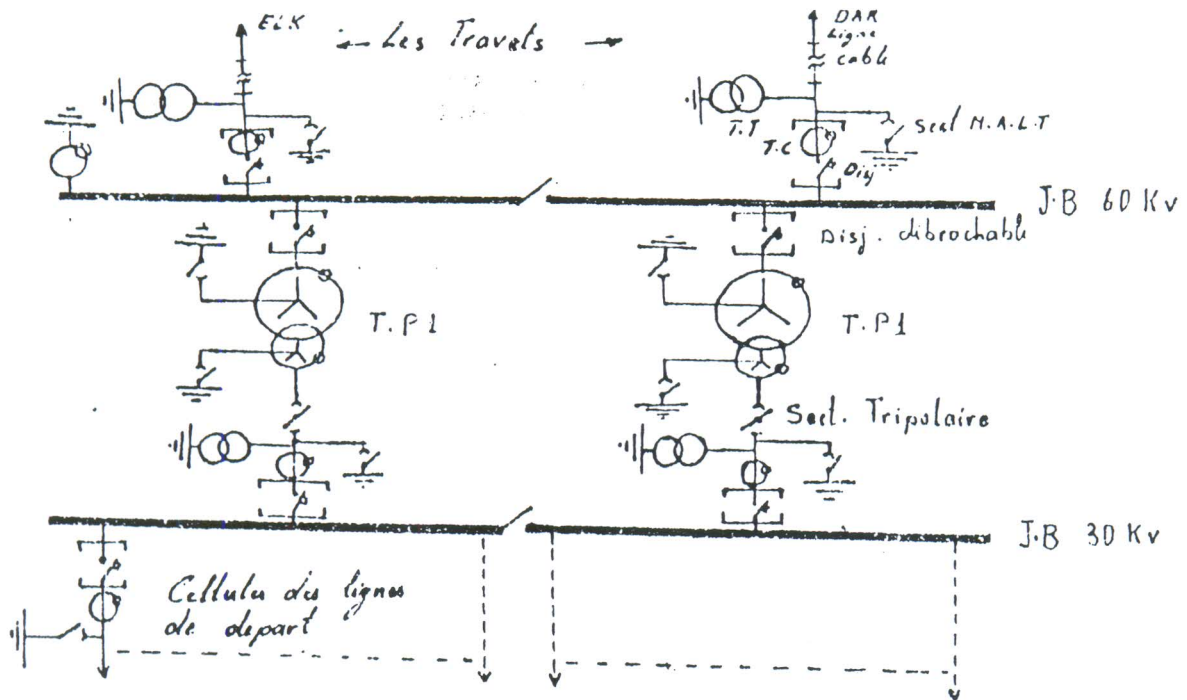 ELK
← Les Travets →
DAR
Ligne
cable
T.T
T.C
Sect M.A.L.T
Disj
J.B 60 Kv
Disj. dibrochable
T.P1
T.P1
Sect. Tripolaire
J.B 30 Kv
Cellules des lignes
de depart